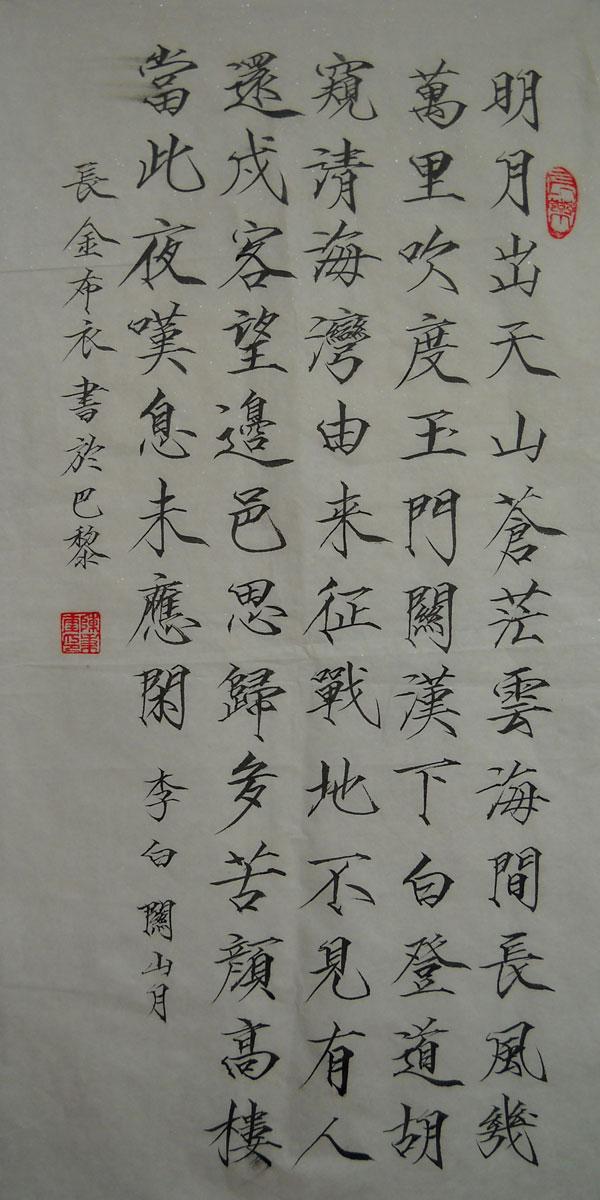 明月出天山蒼茫雲海間長風幾
萬里吹度玉門關漢下白登道胡
窺請海灣由来征戰地不見有人
還戍客望邊邑思歸多苦顏高樓
當此夜嘆息未應閑 李白 關山月
長金布衣書於巴黎